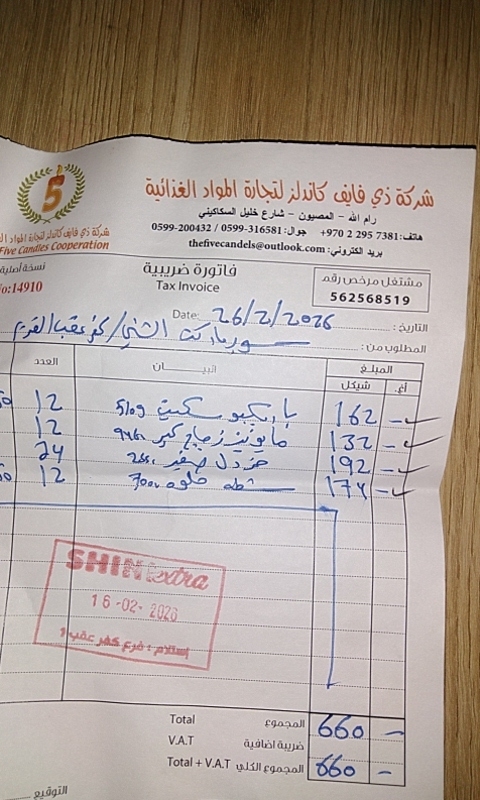 5
شركة ذي فايف كاندلز لتجارة المواد الغذائية
رام الله - المصيون - شارع خليل السكاكيني
هاتف: +970 2 295 7381 جوال: 0599-316581 / 0599-200432
بريد الكتروني: thefivecandels@outlook.com
شركة ذي فايف كاندلز لتجارة المواد
Five Candles Cooperation
نسخة أصلية
No:14910
فاتورة ضريبية
Tax Invoice
مشتغل مرخص رقم
562568519
التاريخ: Date: 26/2/2026
المطلوب من: سوبرماركت الشني / كفر عقب القديم
المبلغ البيـــان العدد
أغ. شيكل
- 162 باربكيو سكيت 510g 12
- 132 مايونيز زجاج كبير 12
- 192 خردل صغير 24
- 174 شطه حلوه 700 12
SHINI extra
16-02-2026
إستلام : فرع كفر عقب 1
Total المجموع 660 -
V.A.T ضريبة اضافية
Total + V.A.T المجموع الكلي 660 -
التوقيع